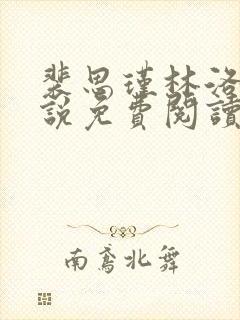 裴思瑾林洛
說免費閱讀
南鳶北舞